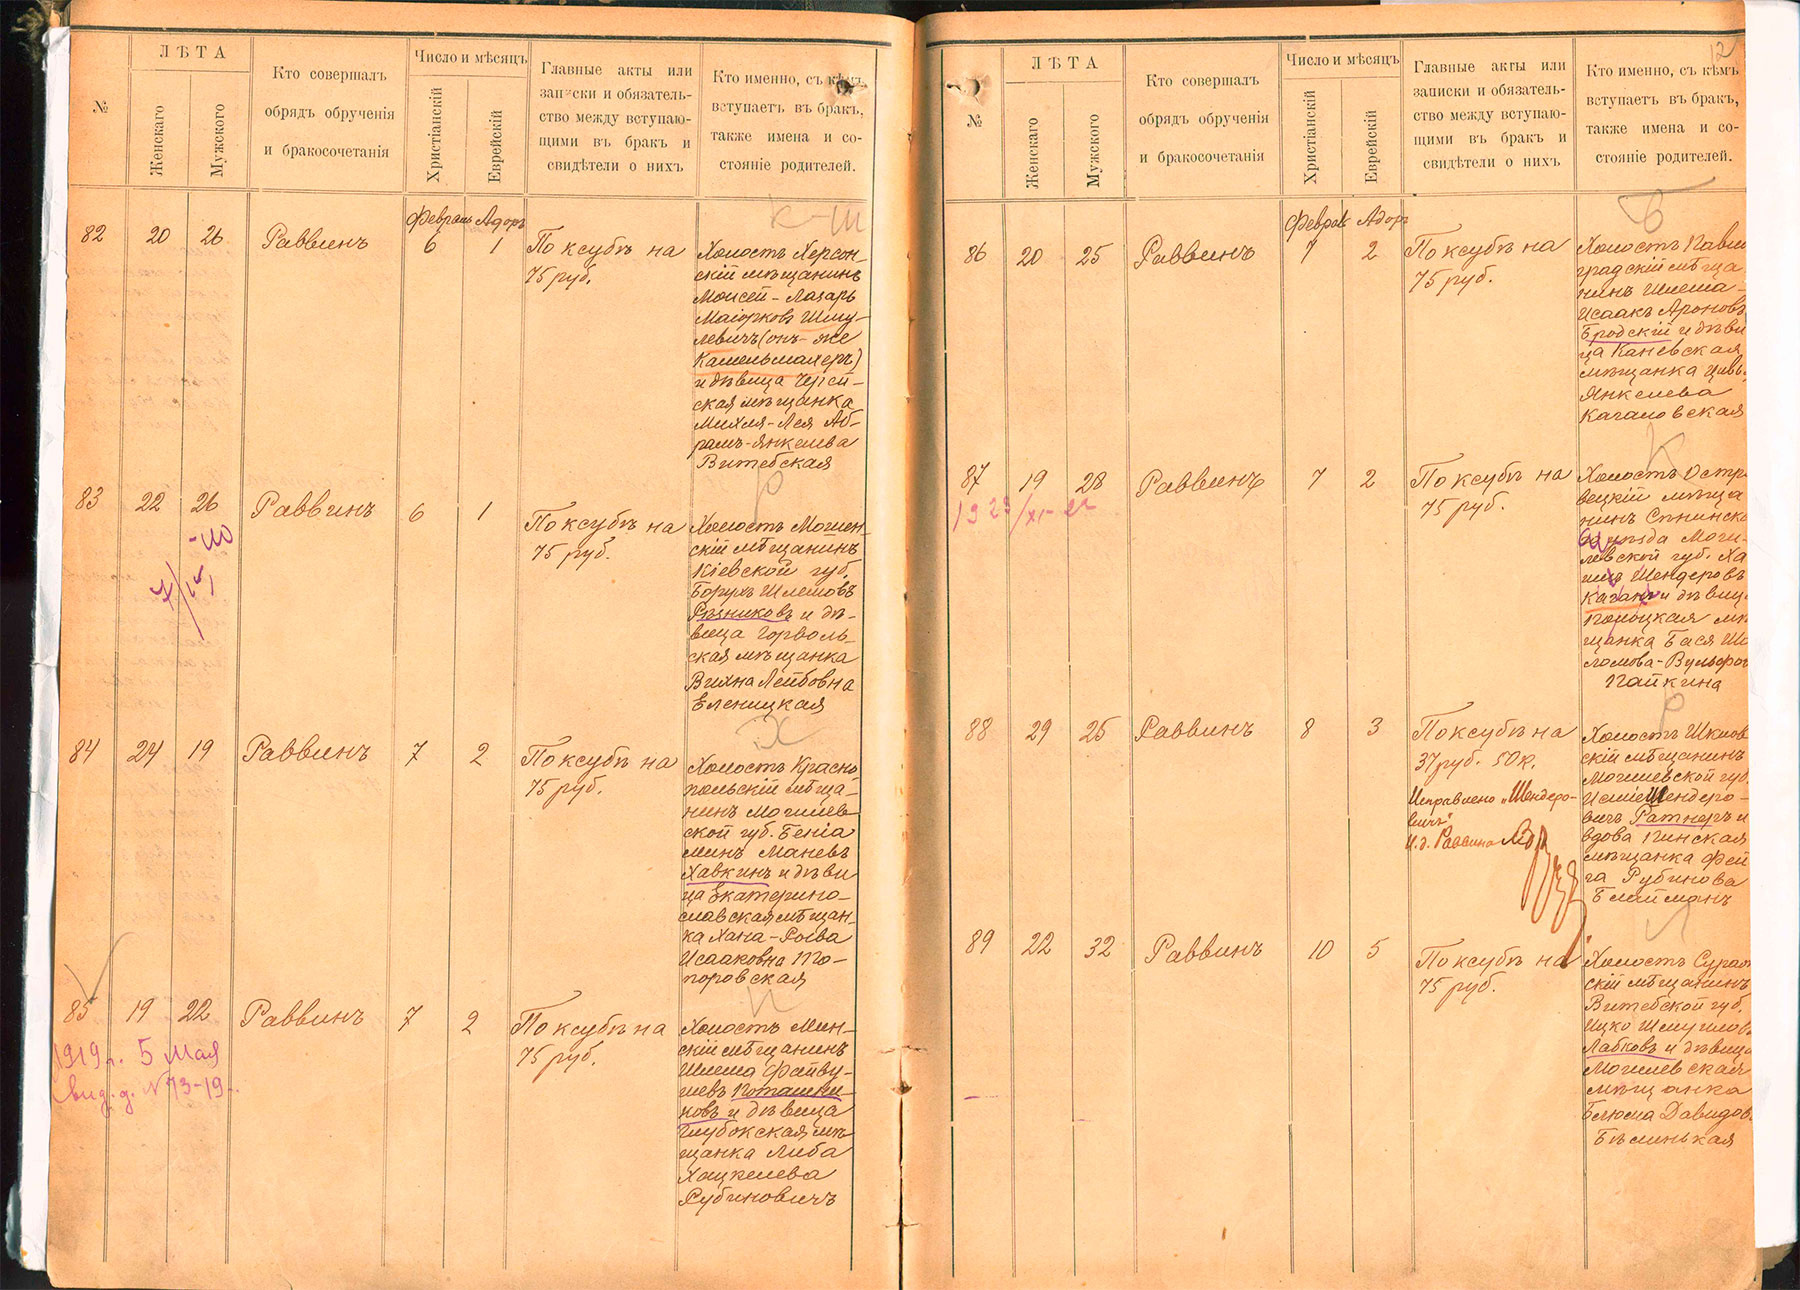 №
ЛѢТА
Женскаго
Мужского
Кто совершалъ
обрядъ обрученія
и бракосочетанія
Число и мѣсяцъ
Христіанскій
Еврейскій
Главные акты или
записки и обязатель-
ство между вступаю-
щими въ бракъ и
свидѣтели о нихъ
Кто именно, съ кѣмъ
вступаетъ въ бракъ,
также имена и со-
стояніе родителей.
К-Ш
Февраль Адоръ
82 20 26 Раввинъ 6 1 По ксубѣ на
75 руб.
Холостъ Херсон-
скій мѣщанинъ
Моисей-Лазарь
Маіорковъ Шму-
левичъ (онъ-же
Кашельмахеръ)
и дѣвица Черей-
ская мѣщанка
Михля-Лея Аб-
рамъ-Янкелева
Витебская
Р
83 22 26 Раввинъ 6 1 По ксубѣ на
75 руб.
Холостъ Могилен-
скій мѣщанинъ
Кіевской губ.
Борухъ Шлемовъ
Рѣзниковъ и дѣ-
вица Горволь-
ская мѣщанка
Вихна Лейбовна
Еленицкая
Х
84 24 19 Раввинъ 7 2 По ксубѣ на
75 руб.
Холостъ Красно
польскій мѣща-
нинъ Могилев
ской губ. Беніа
минъ Маневъ
Хавкинъ и дѣви
ца Екатерино-
славская мѣщан-
ка Хана-Рыва
Исааковна То-
поровская
П
85 19 22 Раввинъ 7 2 По ксубѣ на
75 руб.
1919 г. 5 Мая
вид. д. № 73-19.
Холостъ Мин-
скій мѣщанинъ
Шлема Файву-
шевъ Поташни-
новъ и дѣвица
Глубокская мѣ
щанка Либа
Хацкелева
Рубиновичъ
12
№
ЛѢТА
Женскаго
Мужского
Кто совершалъ
обрядъ обрученія
и бракосочетанія
Число и мѣсяцъ
Христіанскій
Еврейскій
Главные акты или
записки и обязатель-
ство между вступаю-
щими въ бракъ и
свидѣтели о нихъ
Кто именно, съ кѣмъ
вступаетъ въ бракъ,
также имена и со-
стояніе родителей.
Б
Феврал Адоръ
86 20 25 Раввинъ 7 2 По ксубѣ на
75 руб.
Холостъ Павло
градскій мѣща
нинъ Шлема-
Исаакъ Ароновъ
Бродскій и дѣви
ца Каневская
мѣщанка Цивь
Янкелева
Качановская
К
87 19 28 Раввинъ 7 2 По ксубѣ на
75 руб.
1923/XI-22
Холостъ Остро
вецкій мѣща
нинъ Сѣннинска
уѣзда Моги-
левской губ. Ха
имъ Шендеровъ
Каганъ и дѣвиц
Полоцкая мѣ
щанка Бася Шо
ломова-Вульфов
Пайкина
Р
88 29 25 Раввинъ 8 3 По ксубѣ на
37 руб. 50 к.
Исправлено „Шендеро-
вичъ"
И.д. Раввина
Холостъ Шклов
скій мѣщанинъ
Могилевской губ.
Шендеро-
вичъ Ратнеръ и
вдова Пинская
мѣщанка Фей
га Рубинова
Блайманъ
Л
89 22 32 Раввинъ 10 5 По ксубѣ на
75 руб.
Холостъ Сураж
скій мѣщанинъ
Витебской губ.
Ицко Шмуиловъ
Лабковъ и дѣвица
Могилевская
мѣщанка
Блюма Давидов
Бѣлинькая